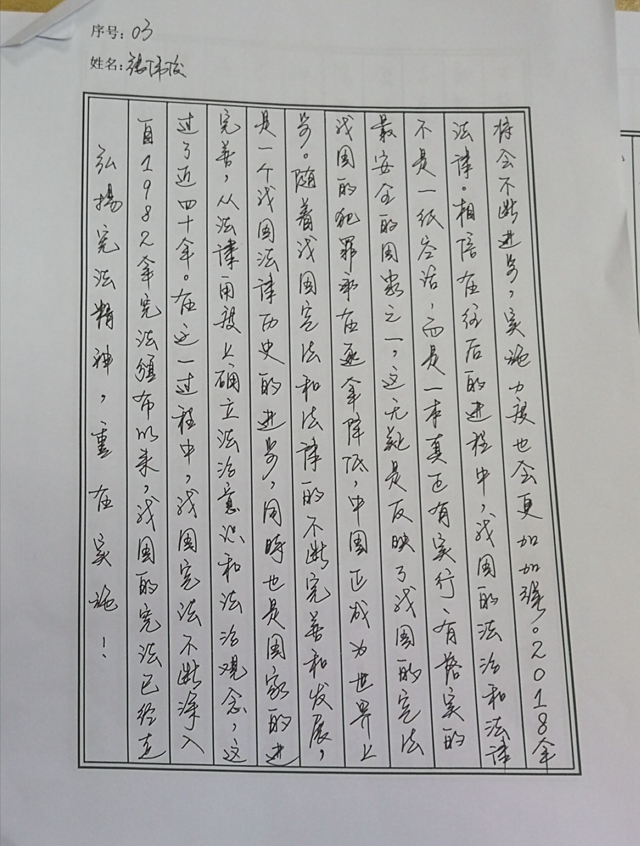 序号: 03
姓名:
弘揚宪法精神，重在实施！
自1982年宪法颁布以来，我国的宪法已经走
过了近四十年。在这一过程中，我国宪法不断深入
完善，从法律角度上确立法治意识和法治观念，这
是一个我国法律历史的进步，同時也是国家的进
步。随着我国宪法和法律的不断完善和发展，
我国的犯罪率在逐年降低，中国正成为世界上
最安全的国家之一，这无疑是反映了我国的宪法
不是一纸空话，而是一本真正有实行、有落实的
法律。相信在往后的进程中，我国的法治和法律
将会不断进步，实施力度也会更加加强。2018年